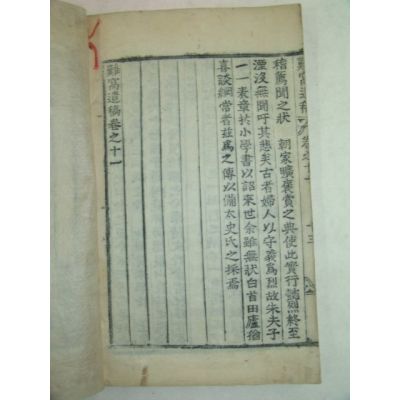 難窩遺稿 卷之十一 十三
稽篤聞之狀 朝家曠褒賞之典使此實行諸烈終至
湮沒無聞吁其悲矣古者婦人以守義爲烈故朱夫子
一一表章於小學書以詔來世余雖無狀白首田廬猶
喜談綱常者玆爲之傳以備太史氏之採焉
難窩遺稿卷之十一